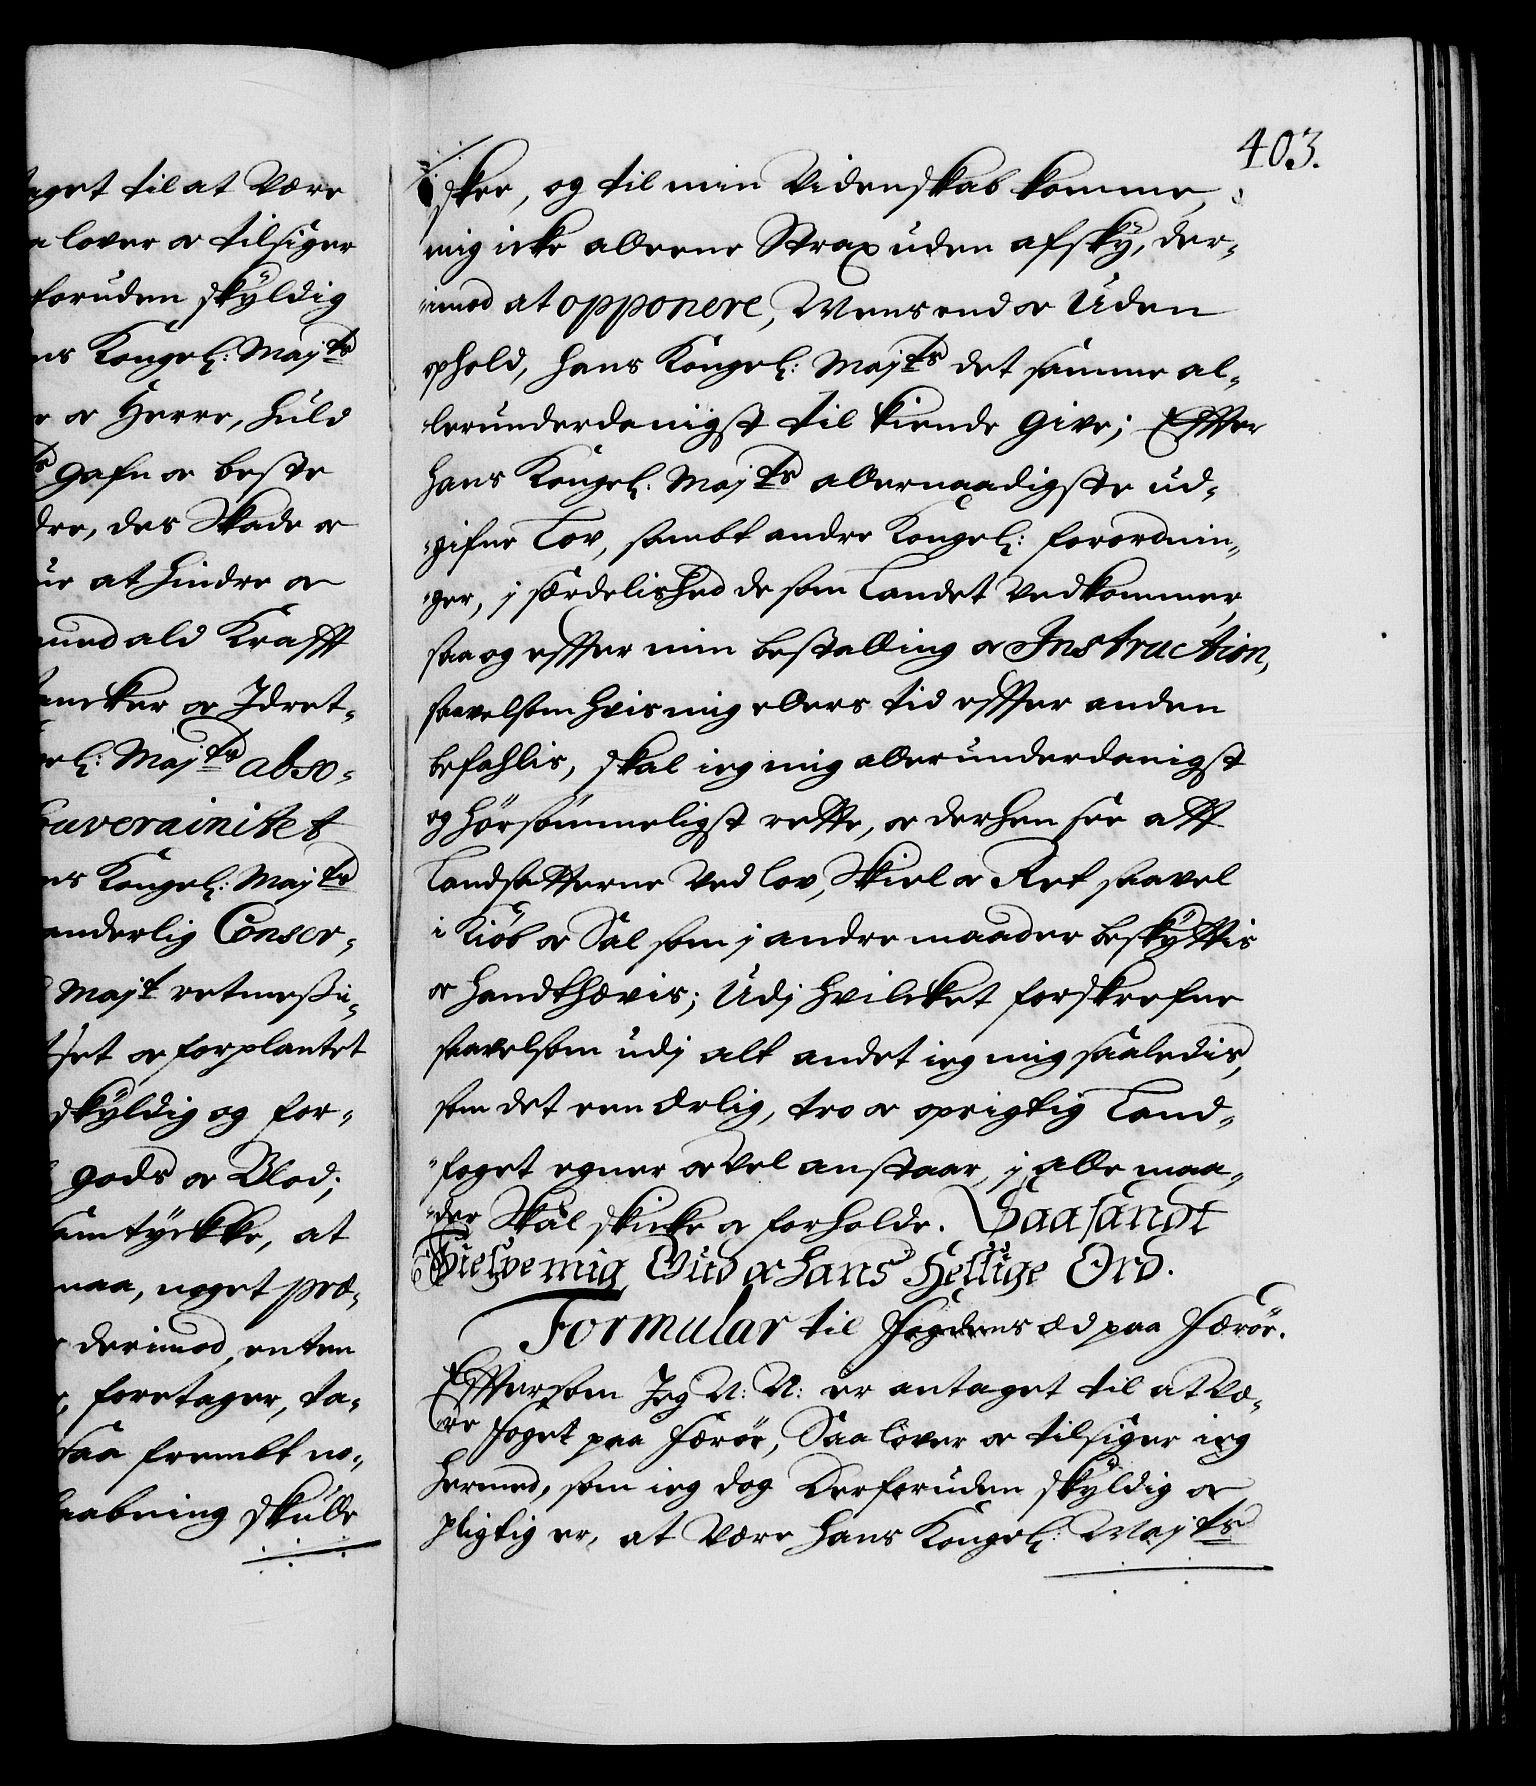 aget til at Være
a lover oc tilsiger
foruden skyldig
ns Kongel: Majts
e oc Herre, huld
ts gafn oc beste
dre, des Skade oc
ne at hindre oc
med ald Krafft
ancker oc Idret-
el: Majts abso-
Souverainitet
ns Kongel: Majts
anderlig Conser-
Majt retmessi-
tset oc forplantet
skyldig og for-
gods oc Blod;
samtyckke, at
maa, noget præ-
derimod, enten
foretager, ta-
saa fremt no-
aabning skulle
403.
skee, og til min Videnskab komme,
mig icke alleene Strax uden afsky, der-
imod at opponere, Mens end oc Uden
ophold, hans Kongel: Majts det samme al-
lerunderdanigst til kiende give; Effter
hans Kongel: Majts allernaadigste ud-
gifne Lov, sambt andre Kongel: forordnin-
ger, j særdelished de som Landet Vedkommer,
saa og effter min bestalling oc Instruction,
saavelsom hvis mig ellers tid effter anden
befahlis, skal ieg mig allerunderdanigst
og hörsommeligst rette, oc derhen see att
Landsatterne Ved lov, Skiel oc Ret saavel
i Kiöb oc Sal som j andre maader beskyttis
oc handthævis; Udj hvilcket forskrefne
saavelsom udj alt andet ieg mig saaledis,
som det een ærlig, tro oc oprigtig Land-
foget egner oc Vel anstaar, j alle maa-
der Skal skicke oc forholde. Saa sandt
Hielpe mig Gud oc hans Hellige Ord.
Formular til Fogdens æd paa Færör.
Efftersom Jeg N: N: er antaget til at Væ-
re foget paa Færör, Saa lover oc tilsiger ieg
hermed, som ieg dog Derforuden skyldig oc
pligtig er, at Være hans Kongel: Majts